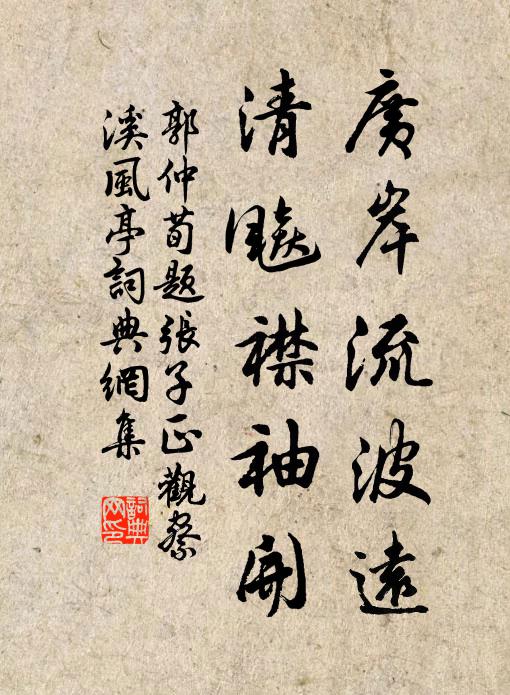 廣岸流波遠
清飈襟袖開
郭仲荀題張子正觀察
溪風亭詞典網集
詞典
网印